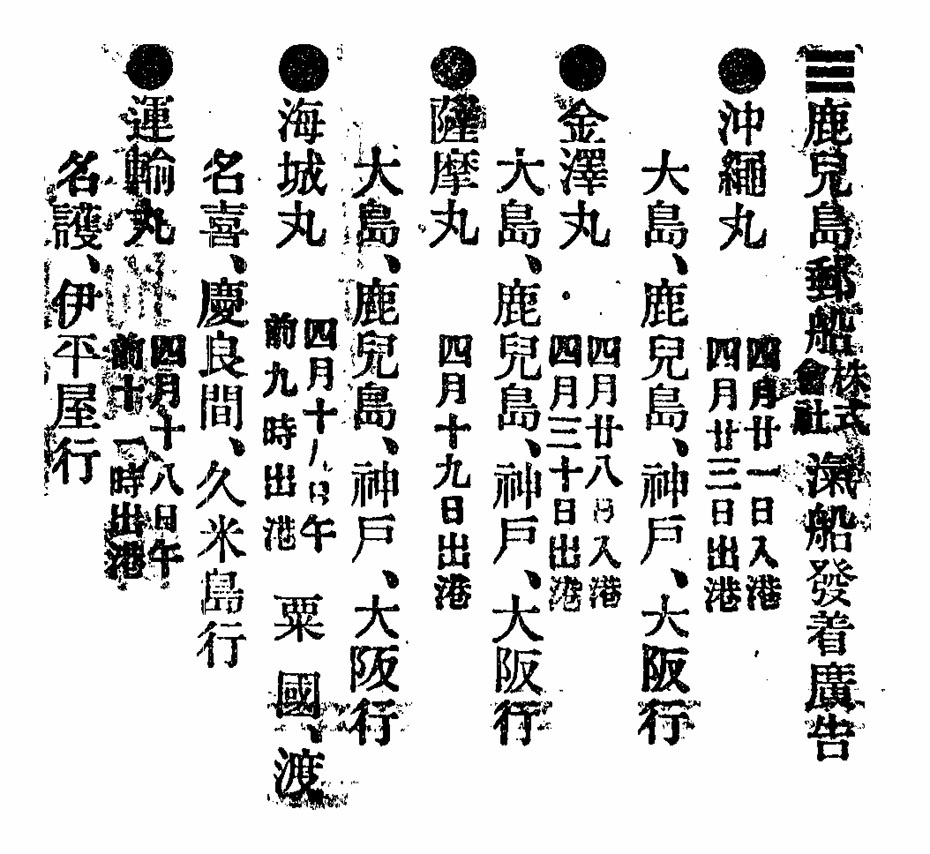 鹿兒島郵船株式會社滊船發着廣告
●沖繩丸 四月廿一日入港
四月廿三日出港
大島、鹿兒島、神戸、大阪行
●金澤丸 四月廿八日入港
四月三十日出港
大島、鹿兒島、神戸、大阪行
●薩摩丸 四月十九日出港
大島、鹿兒島、神戸、大阪行
●海城丸 四月十八日午
前九時出港 粟國、渡
名喜、慶良間、久米島行
●運輸丸 四月十八日午
前十一時出港
名護、伊平屋行